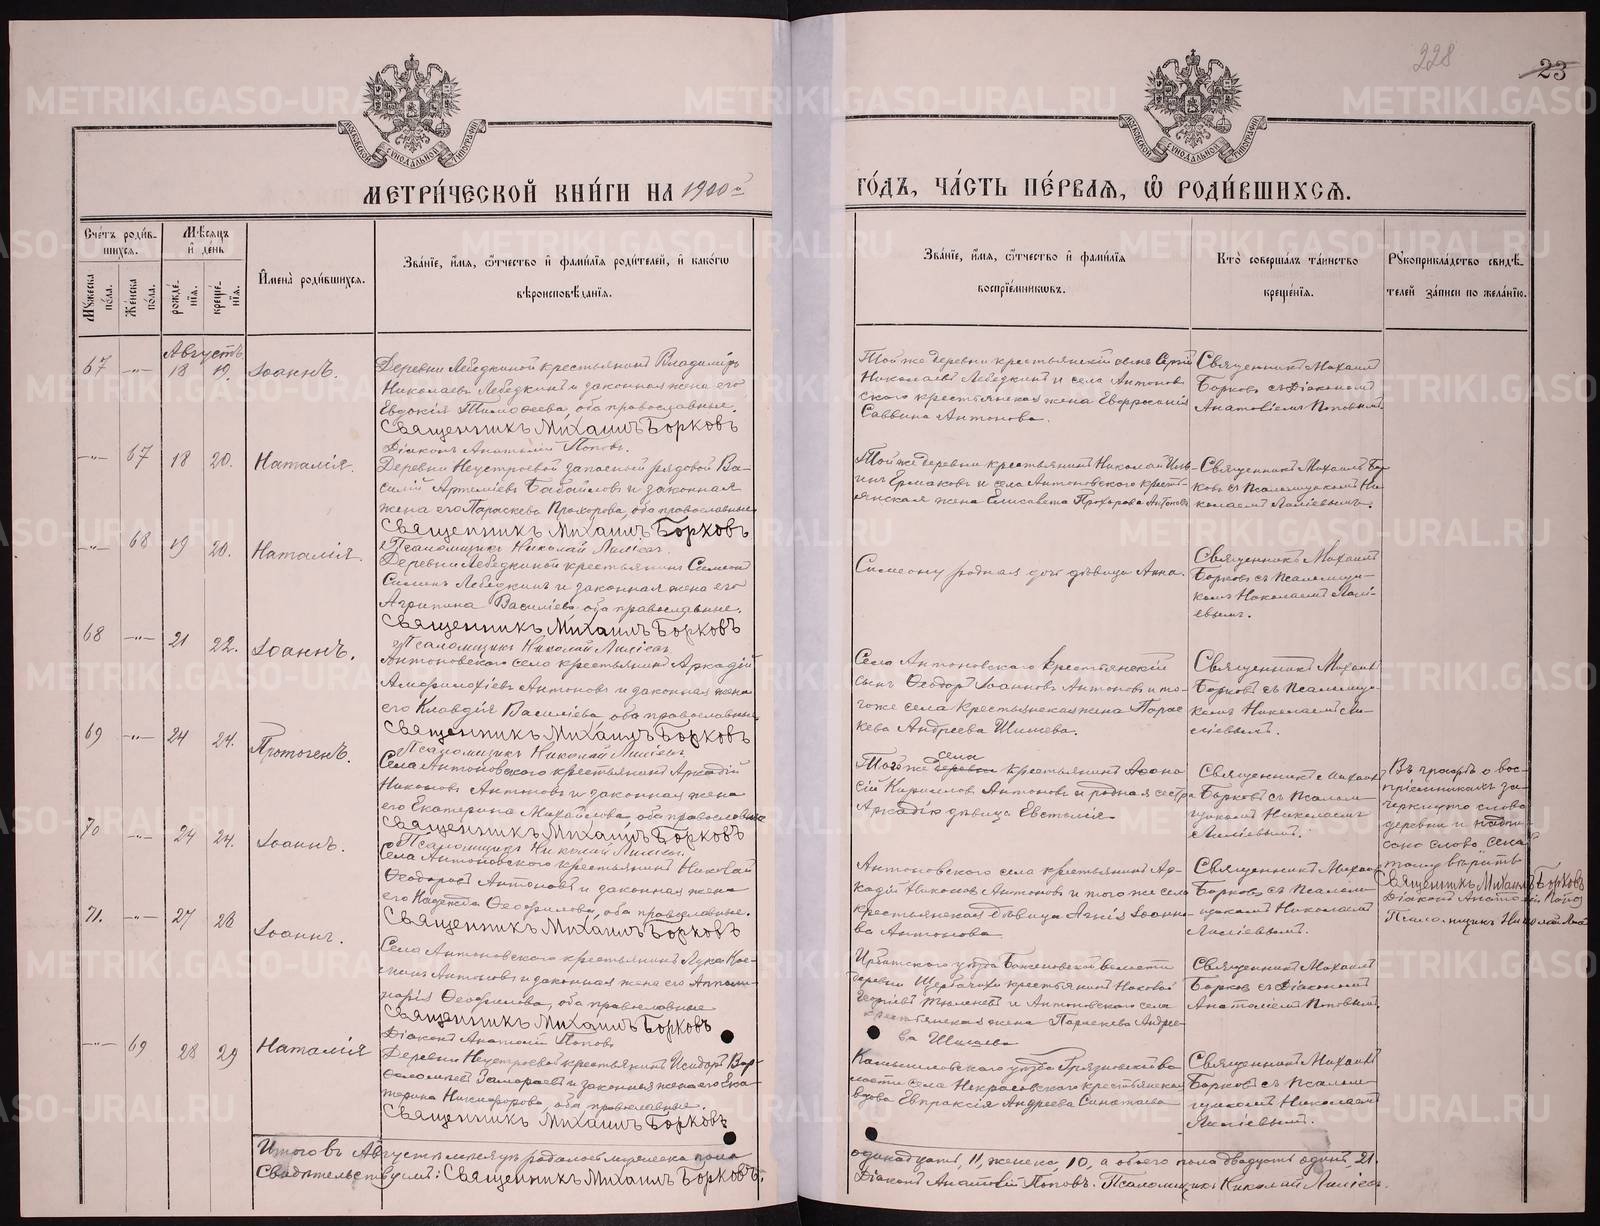 228
23
МОСКОВСКОЙ СѴНОДАЛЬНОЙ ТИПОГРАФІИ
МОСКОВСКОЙ СѴНОДАЛЬНОЙ ТИПОГРАФІИ
МЕТРИ́ЧЕСКОЙ КНИ́ГИ НА 1900й
ГО́ДЪ, ЧА́СТЬ ПЕ́РВАѦ, Ѡ҆ РОДИ́ВШИХСѦ.
Сче́тъ роди́в-
шихсѧ.
Мѣ́сѧцъ
и҆ де́нь
Мꙋ́жеска
по́ла.
Же́нска
по́ла.
рожде́-
нїѧ.
креще́-
нїѧ.
И҆мена̀ роди́вшихсѧ.
Зва́нїе, и҆́мѧ, ѻ҆́тчество и҆ фами́лїѧ роди́телей, и҆ како́гѡ
вѣроисповѣ́данїѧ.
Зва́нїе, и҆́мѧ, ѻ҆́тчество и҆ фами́лїѧ
воспрїе́мникѡвъ.
Кто̀ соверша́лъ та́инство
креще́нїѧ.
Рꙋкоприкла́дство свидѣ́-
телей за́писи по жела́нїю.
Августъ.
67 -"- 18 19. Іоаннъ.
Деревни Лебедкиной крестьянинъ Владимиръ
Николаевъ Лебедкинъ и законная жена его
Евдокія Тимофеева, оба православные.
Священникъ Михаилъ Борковъ
Діаконъ Анатолій Поповъ.
Той же деревни крестьянскій сынъ Сергій
Николаевъ Лебедкинъ и села Антонов
ского крестьянская жена Евфросинія
Саввина Антонова.
Священникъ Михаилъ
Борковъ съ Діакономъ
Анатоліемъ Поповымъ.
-"- 67 18 20. Наталія.
Деревни Неустроевой запасный рядовой Ва-
силій Артеміевъ Бабайловъ и законная
жена его Параскева Прохорова, оба православные
Священникъ Михаилъ Борковъ
Псаломщикъ Николай
Той же деревни крестьянинъ Николай
Ермаковъ и села Антоновского кресть-
янская жена Елисавета Прохорова Антонов
Священникъ Михаилъ Бор
ковъ съ Псаломщикомъ Ни
колаемъ
-"- 68 19 20. Наталія.
Деревни Лебедкиной крестьянинъ Симеонъ
Лебедкинъ и законная жена его
Агрипина Василіева оба православные.
Священникъ Михаилъ Борковъ
Псаломщикъ Николай
Симеону родная дочь дѣвица Анна.
Священникъ Михаилъ
Борковъ съ Псаломщи-
комъ Николаемъ
68 -"- 21 22. Іоаннъ.
Антоновского села крестьянинъ Аркадій
Амфилохіевъ Антоновъ и законная жена
его Клавдія Василіева, оба православные
Священникъ Михаилъ Борковъ
Псаломщикъ Николай
Села Антоновского крестьянскій
сынъ Ѳеодоръ Іоанновъ Антоновъ и то-
гоже села крестьянская жена Парас
кева Андреева Шишева.
Священникъ Михаилъ
Борковъ съ Псаломщи-
комъ Николаемъ
69 -"- 24 24. Протогенъ.
Села Антоновского крестьянинъ Аркадій
Никоновъ Антоновъ и законная жена
его Екатерина Михайлова, оба православные
Священникъ Михаилъ Борковъ
Псаломщикъ Николай
села
Тойже деревни крестьянинъ Афона
сій Кириловъ Антоновъ и родная сестра
Аркадію дѣвица Евстолія
Священникъ Михаилъ
Борковъ съ Псалом-
щикомъ Николаемъ
Въ графѣ о вос-
пріемникахъ за-
черкнуто слово
деревни и надпи
сано слово села
тому вѣрить
Священникъ Михаилъ Борковъ
Діаконъ Анатолій Попов
Псаломщикъ Николай
70 -"- 24 24. Іоаннъ.
Села Антоновского крестьянинъ Николай
Ѳеодоровъ Антоновъ и законная жена
его Надежда Ѳеофилова, оба православные.
Священникъ Михаилъ Борковъ
Антоновского села крестьянинъ Ар-
кадій Никоновъ Антоновъ и того же села
крестьянская дѣвица Агнія Іоанно-
ва Антонова
Священникъ Михаилъ
Борковъ съ Псалом-
щикомъ Николаемъ
71. -"- 27 28 Іоаннъ.
Села Антоновского крестьянинъ Лука
Антоновъ и законная жена его Аполли-
нарія Ѳеофилова, оба православные
Священникъ Михаилъ Борковъ
Діаконъ Анатолій Поповъ
Ирбитского уѣзда Баженовской волости
деревни крестьянинъ
Георгіевъ и Антоновского села
крестьянская жена Параскева Андрее-
ва Шишева
Священникъ Михаилъ
Борковъ съ Діакономъ
Анатоліемъ Поповымъ.
-"- 69 28 29 Наталія
Деревни Неустроевой крестьянинъ Исидоръ Вар
ѳоломеевъ и законная жена его Ека-
терина Никифорова, оба православные.
Священникъ Михаилъ Борковъ
Камышловского уѣзда Грязновской во
лости села Некрасовского крестьянская
вдова Евпраксія Андреева
Священникъ Михаилъ
Борковъ съ Псалом-
щикомъ Николаемъ
Итого въ Августѣ мѣсяцѣ родилось мужеска пола
одинадцать, 11, женска, 10, а обоего пола двадцать одинъ, 21.
Свидѣтельствуемъ: Священникъ Михаилъ Борковъ.
Діаконъ Анатолій Поповъ. Псаломщикъ Николай